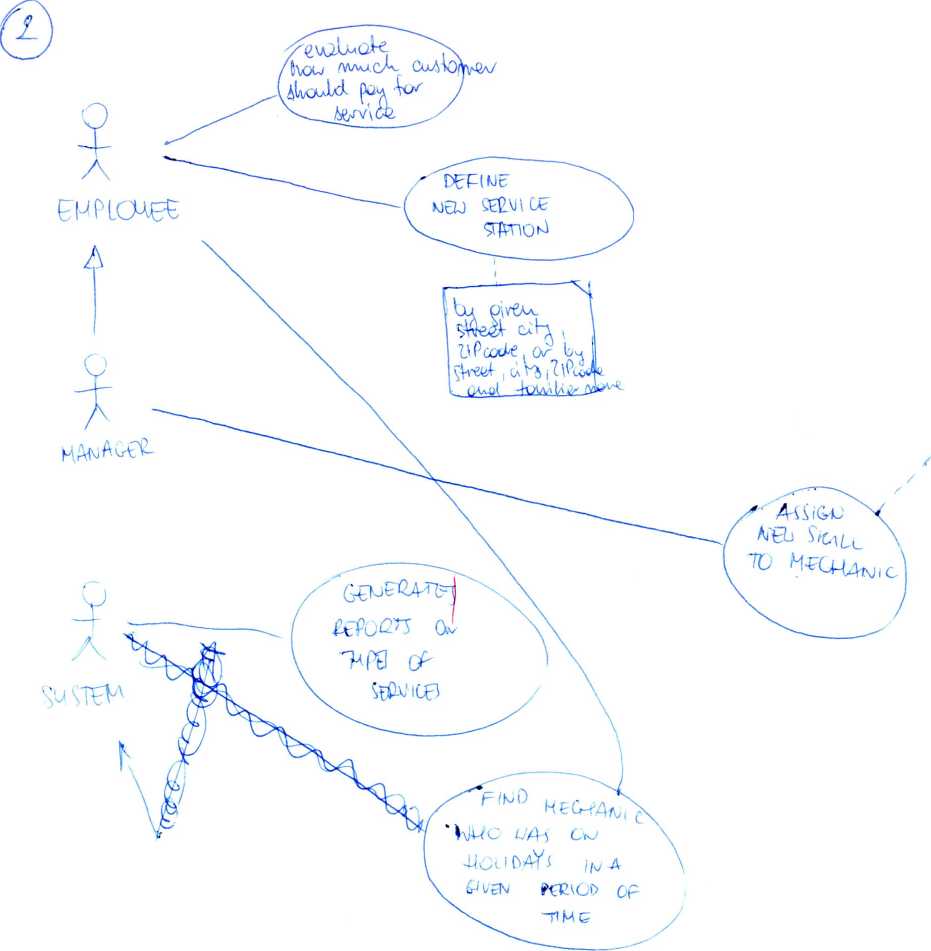 2
evaluate
how much customer
should pay for
service
EMPLOYEE
DEFINE
NEW SERVICE
STATION
by given
street city,
ZIPcode, or by
street, city, ZIPcode
and
MANAGER
ASSIGN
NEW SKILL
TO MECHANIC
SYSTEM
GENERATES
REPORTS ON
TYPES OF
SERVICES
FIND MECHANIC
WHO WAS ON
HOLIDAYS IN A
GIVEN PERIOD OF
TIME